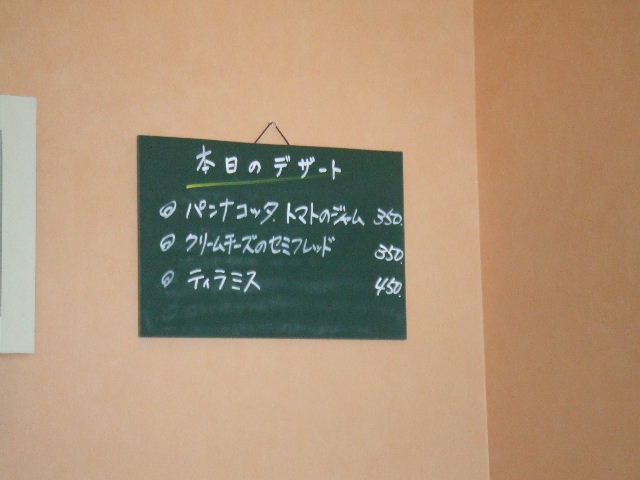 本日のデザート
◎ パンナコッタ トマトのジャム 350.
◎ クリームチーズのセミフレッド 350.
◎ ティラミス 450.